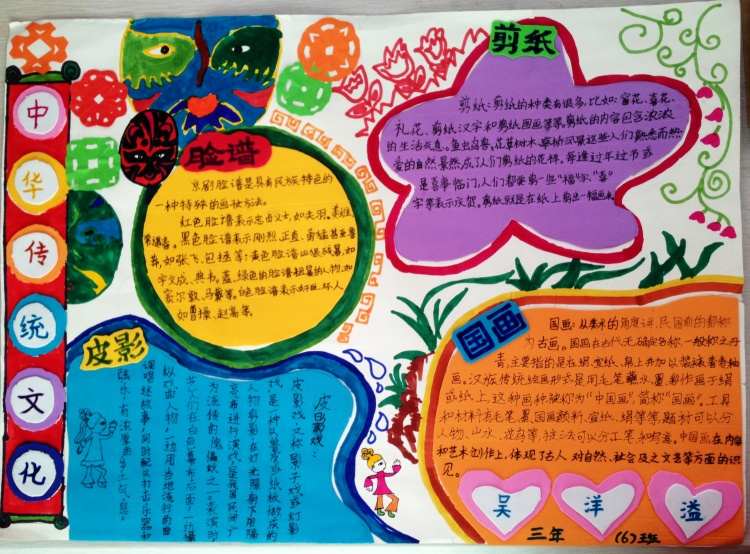 中
华
传
统
文
化
脸谱
京剧脸谱是具有民族特色的
一种特殊的画妆方法。
红色脸谱表示忠勇义士,如关羽、
黑色脸谱表示刚烈、正直、勇猛甚至鲁
莽,如张飞、包拯等;黄色脸谱
宇文成、典韦。蓝、绿色的脸谱
窦尔敦、马武等。白色脸谱表示奸臣、坏人,
如曹操、赵高等。
剪纸
剪纸:剪纸的种类有很多,比如:窗花、喜花、
礼花、剪纸汉字和剪纸团画等等。剪纸的内容包含浓浓
的生活气息。鱼虫鸟兽、花草树木、亭桥风景这些人们熟悉而热
爱的自然景然成了人们剪纸的花样。每逢过年过节或
是喜事临门,人们都要剪一些“福”字、“喜”
字等表示庆贺。剪纸就是在纸上剪出一幅画来。
皮影
皮影戏:
皮影戏,又称“影子戏”或“灯影
戏”,是一种以兽皮或纸板做成的
人物剪影在灯光照射下用隔
亮布进行演戏,是我国民间广
为流传的傀儡戏之一。表演时
艺人们在白色幕布后面,一边操
纵戏曲人物,一边用当地流行的曲
调唱述故事,同时配以打击乐器和
弦乐,有浓厚的乡土气息。
国画
国画:从美术的角度讲,民国前的都称
为古画。国画在古代无确定名称,一般称之丹
青,主要指的是在绢、宣纸、帛上并加以装裱的卷轴
画。汉族传统绘画形式是用毛笔蘸水、墨、彩作画于绢
或纸上,这种画种被称为“中国画”,简称“国画”。工具
和材料有毛笔、墨、国画颜料、宣纸、绢等等,题材可以分
人物、山水、花鸟等,技法可以分工笔和写意,中国画在内容
和艺术创作上,体现了古人对自然、社会及之文艺等方面的认
识。
吴 洋 溢
三年 (6)班